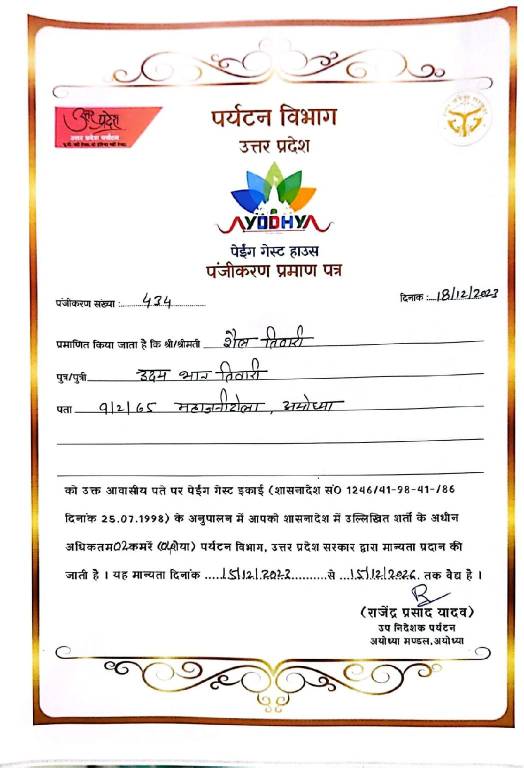 उत्तर प्रदेश
उत्तर प्रदेश पर्यटन
यू.पी. नहीं देखा तो इंडिया नहीं देखा
पर्यटन विभाग
उत्तर प्रदेश
AYODHYA
पेईंग गेस्ट हाउस
पंजीकरण प्रमाण पत्र
पंजीकरण संख्या :.......434.......
दिनांक :..18/12/2023
प्रमाणित किया जाता है कि श्री/श्रीमती शैल तिवारी
पुत्र/पुत्री उदय भान तिवारी
पता 9/2/65 महाजनीटोला, अयोध्या
को उक्त आवासीय पते पर पेईंग गेस्ट इकाई (शासनादेश सं0 1246/41-98-41-/86
दिनांक 25.07.1998) के अनुपालन में आपको शासनादेश में उल्लिखित शर्तो के अधीन
अधिकतम02कमरें (04शैया) पर्यटन विभाग, उत्तर प्रदेश सरकार द्वारा मान्यता प्रदान की
जाती है । यह मान्यता दिनांक ....15/12/2023..........से ...15/12/2026. तक वैद्य है ।
(राजेंद्र प्रसाद यादव)
उप निदेशक पर्यटन
अयोध्या मण्डल,अयोध्या